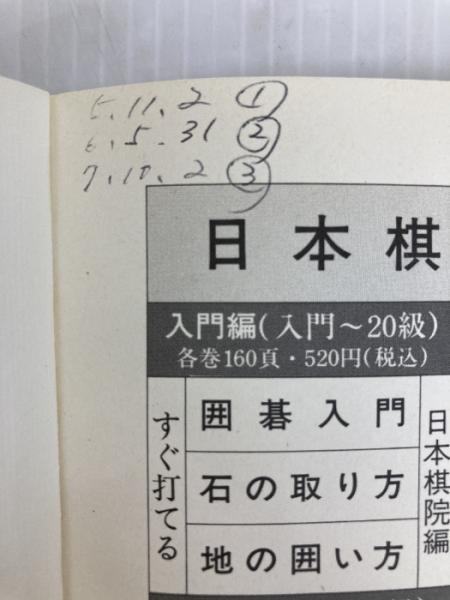 5. 11. 2 ①
6. 5. 31 ②
7. 10. 2 ③
日本棋
入門編(入門～20級)
各巻160頁・520円(税込)
すぐ打てる
囲碁入門
石の取り方
地の囲い方
日本棋院編